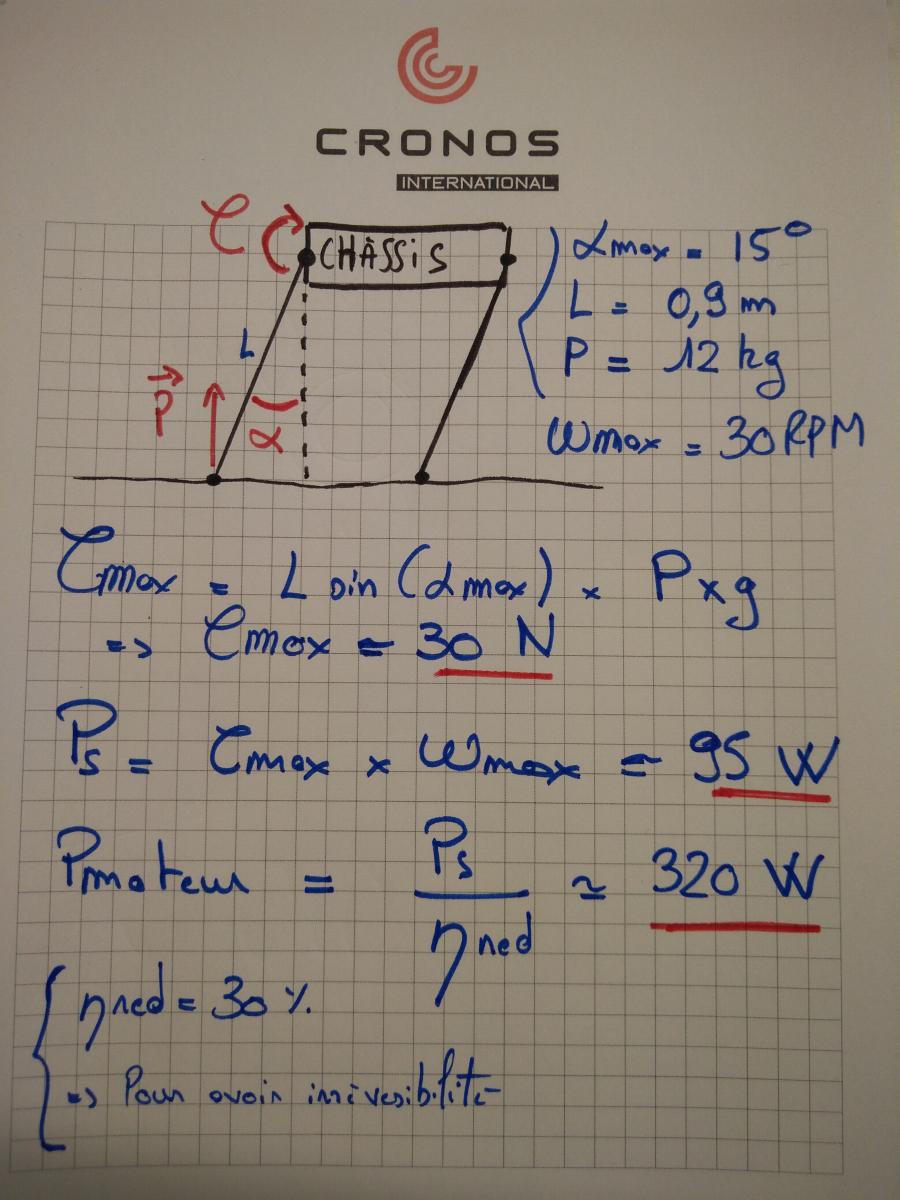 CRONOS
INTERNATIONAL
C
CHÂSSIS
αmax = 15°
L
L = 0,9 m
P = 12 kg
P
α
ωmax = 30 RPM
Cmax = L sin (αmax) x P x g
=> Cmax = 30 N
Ps = Cmax x ωmax = 95 W
Pmoteur = Ps / ηred ≃ 320 W
ηred = 30 %
=> Pour avoir irréversibilité